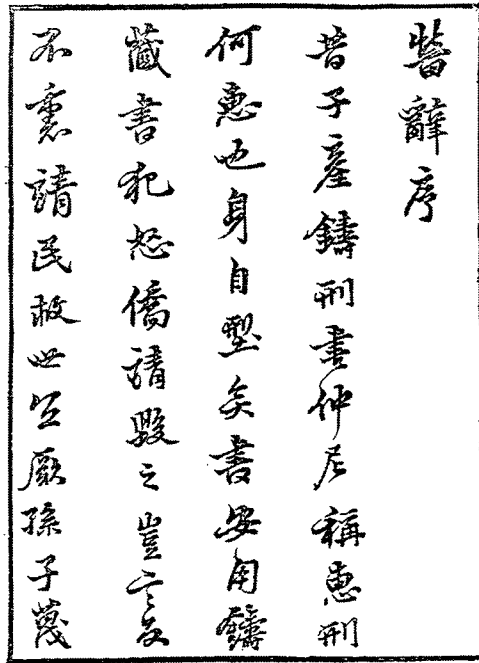 辭序
昔子產鑄刑書仲尼稱惠刑
何惠也身自型矣書安用鑄
藏書犯怒僑請毀之豈
不請民救世厥孫子蔑